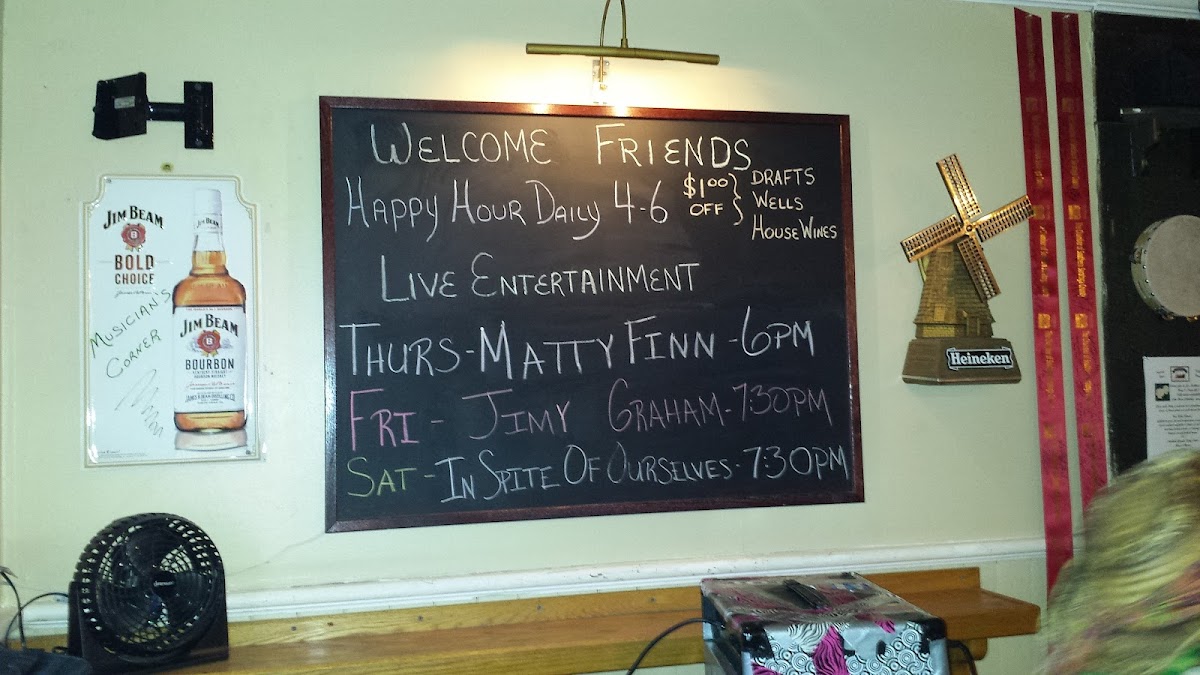 WELCOME FRIENDS
HAPPY HOUR DAILY 4-6 $1.00 OFF } DRAFTS
WELLS
HOUSE WINES
LIVE ENTERTAINMENT
THURS-MATTY FINN-6PM
FRI-JIMY GRAHAM-7:30PM
SAT-IN SPITE OF OURSELVES-7:30PM
JIM BEAM
B
BOLD
CHOICE
MUSICIAN'S
CORNER
JIM BEAM
JIM BEAM
B
BOURBON
KENTUCKY STRAIGHT
BOURBON WHISKEY
Heineken